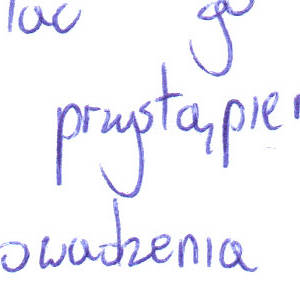 lac go
przystąpien
owadzenia